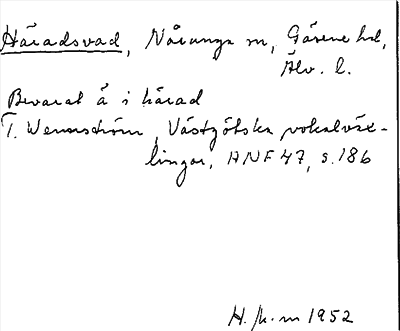 Häradsvad, Nårunga sn, Gäsene hd,
Älv. l.
Bevarat ä i härad
T. Wennström, Västgötska vokalväx-
lingar, ANF 47, s. 186
H. k. m 1952